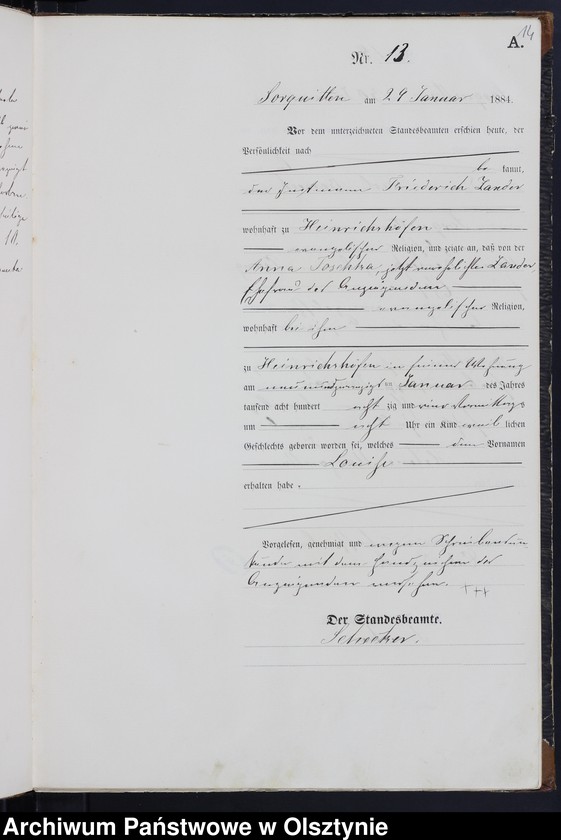 14
A.
Nr. 13.
Sorquitten am 29 Januar 1884.
Vor dem unterzeichneten Standesbeamten erschien heute, der
Persönlichkeit nach
be kannt,
der Friederich Zander
wohnhaft zu Heinrichshöfen
evangelischer Religion, und zeigte an, daß von der
Anna Soschka, jetzt verehelichte Zander
Ehefrau des Anzeigenden
evangelischer Religion,
wohnhaft bei ihm
zu Heinrichshöfen in seiner Wohnung
am neunundzwanzigsten Januar des Jahres
tausend acht hundert acht zig und vier Vormittags
um acht Uhr ein Kind weib lichen
Geschlechts geboren worden sei, welches den Vornamen
Louise
erhalten habe.
Vorgelesen, genehmigt und wegen Schreibensun-
kunde mit dem Handzeichen des
Anzeigenden versehen. +++
Der Standesbeamte.
Archiwum Państwowe w Olsztynie